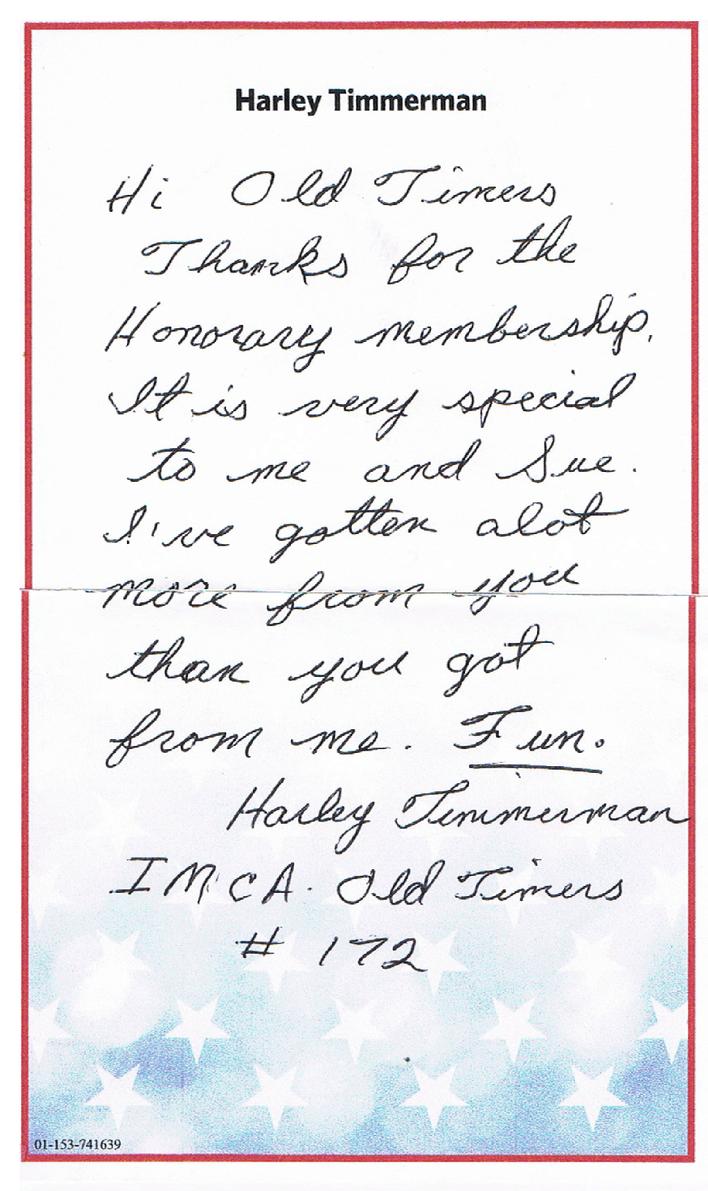 Harley Timmerman
Hi Old Timers
Thanks for the
Honorary membership.
It is very special
to me and Sue.
I've gotten alot
more from you
than you got
from me. Fun.
Harley Timmerman
IMCA. Old Timers
# 172
01-153-741639